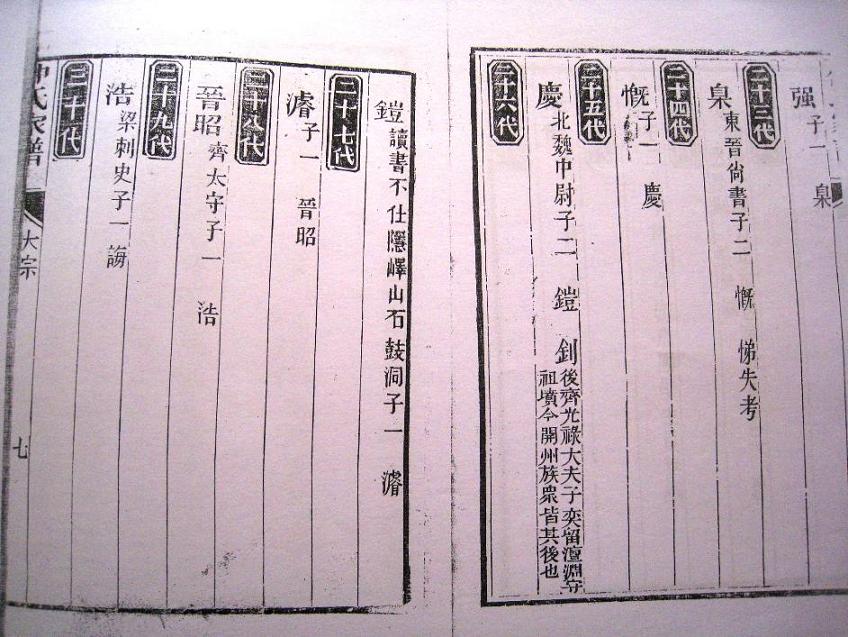 强子一 臬
二十三代
臬東晉尙書子二 慨 悌失考
二十四代
慨子一 慶
二十五代
慶北魏中尉子二 鎧 釗後齊光祿大夫子奕留澶淵守
祖墳今開州族衆皆其後也
二十六代
鎧讀書不仕隱嶧山石鼓洞子一 濬
二十七代
濬子一 晉昭
二十八代
晉昭齊太守子一 浩
二十九代
浩梁刺史子一 誨
三十代
氏家譜
大宗
七